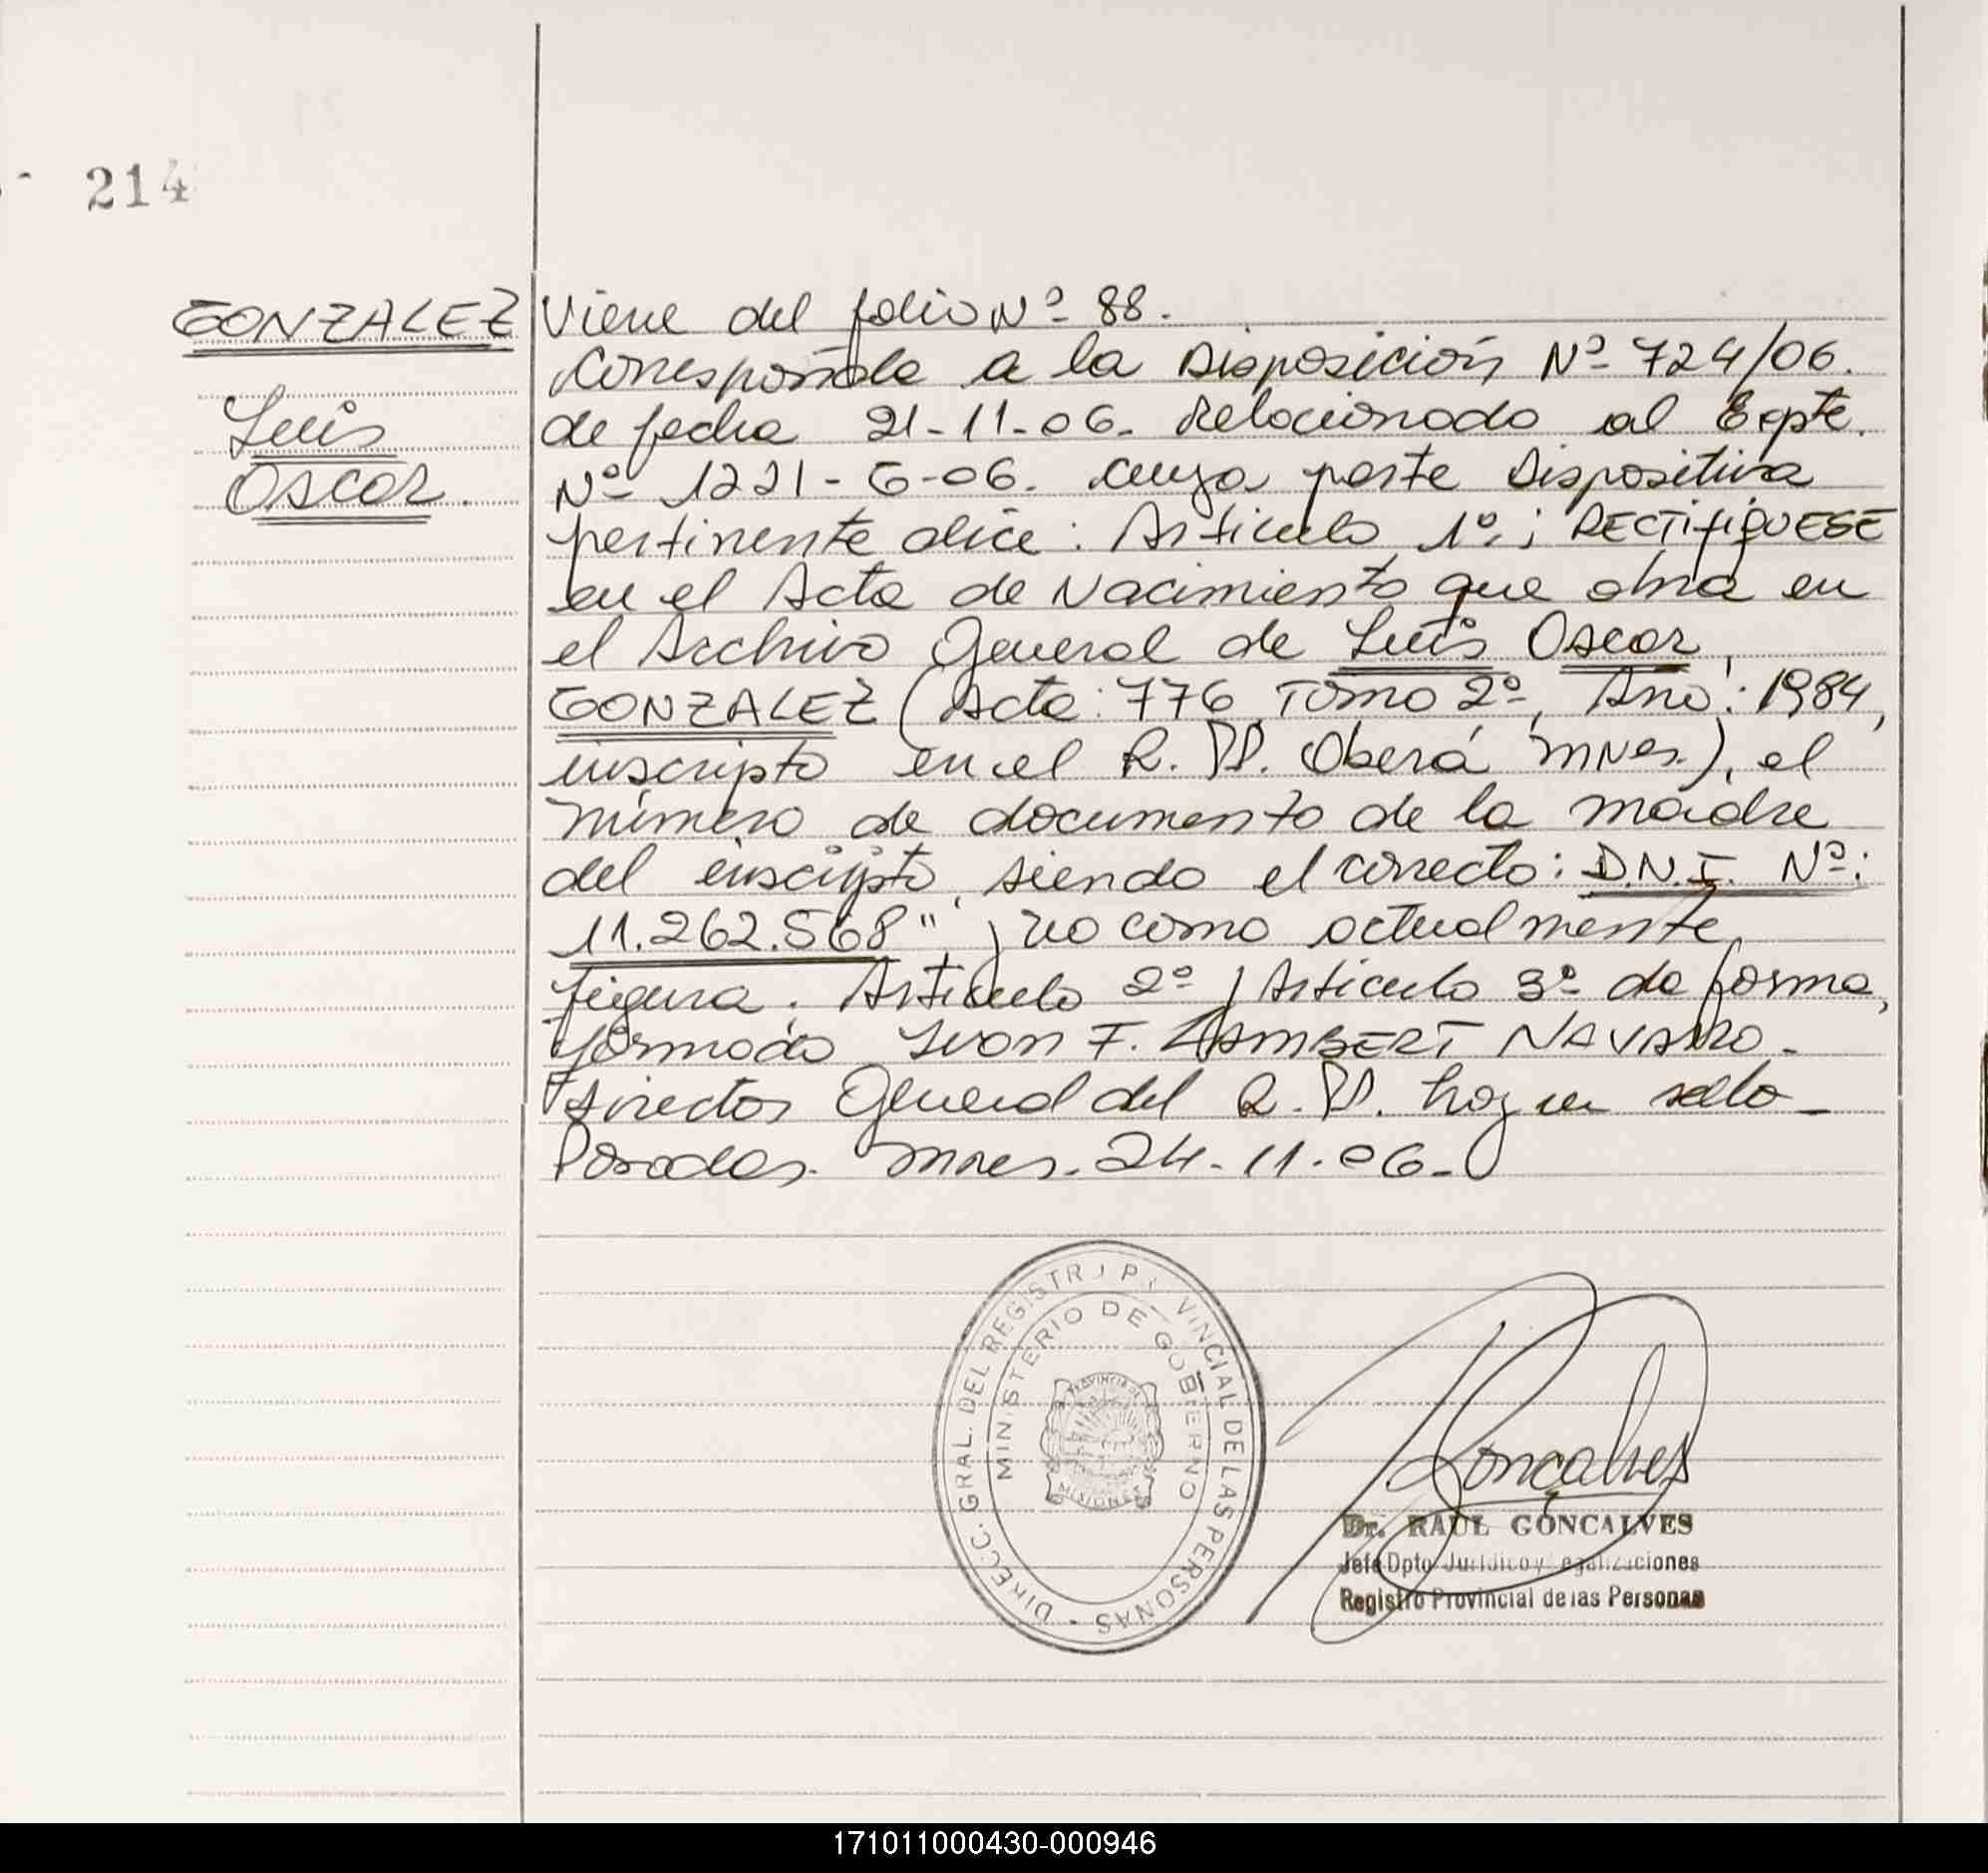 214
GONZALEZ
Luis
Oscar.
Viene del folio Nº 88.
Corresponde a la Disposición Nº 724/06.
de fecha 21-11-06. Relacionado al Expte.
Nº 1221-G-06. cuya parte Dispositiva
pertinente dice: Articulo 1º; RECTIFIQUESE
en el Acta de Nacimiento que obra en
el Archivo General de Luis Oscar
GONZALEZ (Acta: 776, Tomo 2º, Año: 1984,
inscripto en el R.PP. Oberá, Mnes.), el
número de documento de la madre
del inscripto, siendo el correcto: D.N.I. Nº:
11.262.568", y no como actualmente
figura. Articulo 2º y Articulo 3º de forma,
firmado Ivon F. LAMBERT NAVARRO-
Director General del R.PP. hay un sello-
Posadas. Mnes. 24-11-06.-
DIRECC. GRAL. DEL REGISTRO PROVINCIAL DE LAS PERSONAS -
MINISTERIO DE GOBIERNO
PROVINCIA DE
MISIONES
Goncalves
Dr. RAUL GONCALVES
Jefe Dpto Jurídico y Legalizaciones
Registro Provincial de las Personas
171011000430-000946